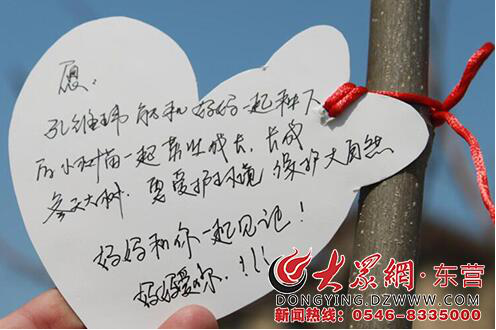 愿:
孔维琦能和妈妈一起种下
的小树苗一起茁壮成长,长成
参天大树.要爱护环境 保护大自然
妈妈和你一起见证!
妈妈爱你.!!!
大眾網·东营
DONGYING.DZWWW.COM
新闻热线:0546-8335000